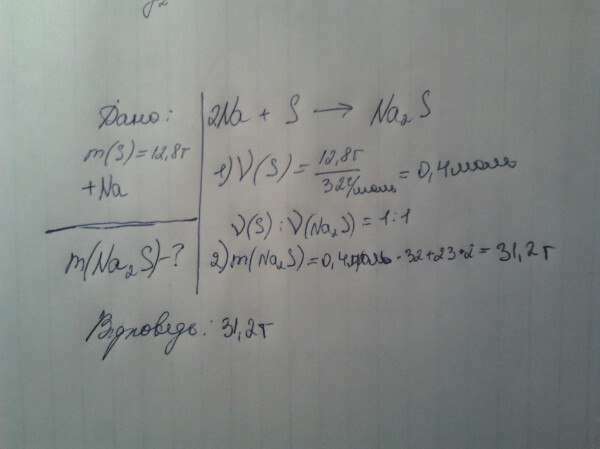 Дано:
m(S)=12,8г
+Na
m(Na₂S)-?
2Na + S → Na₂S
1) ν(S) = 12,8г / 32г/моль = 0,4моль
ν(S) : ν(Na₂S) = 1:1
2) m(Na₂S)=0,4моль · 32+23·2 = 31,2г
Відповедь: 31,2г